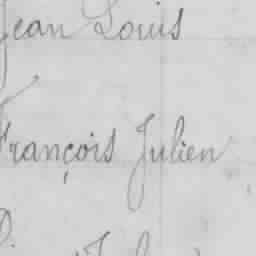 Jean Louis
François Julien